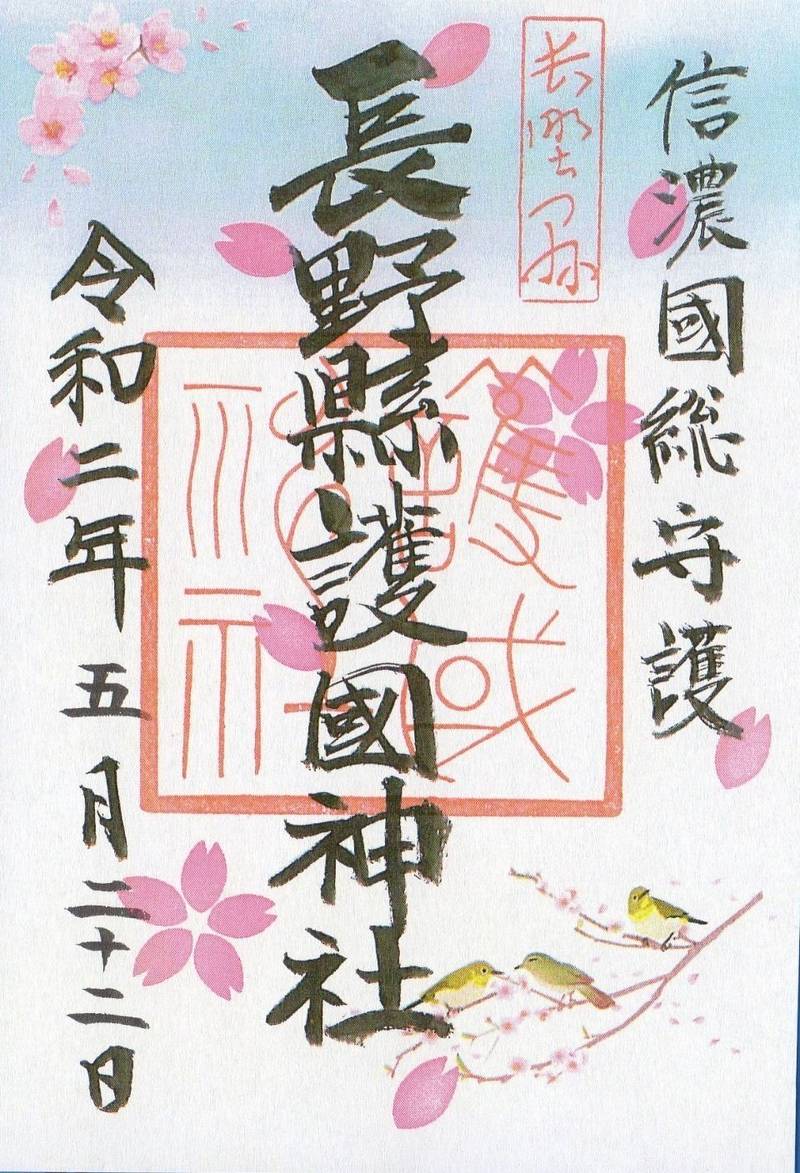 信濃國総守護
長野縣護國神社
令和二年五月二十二日